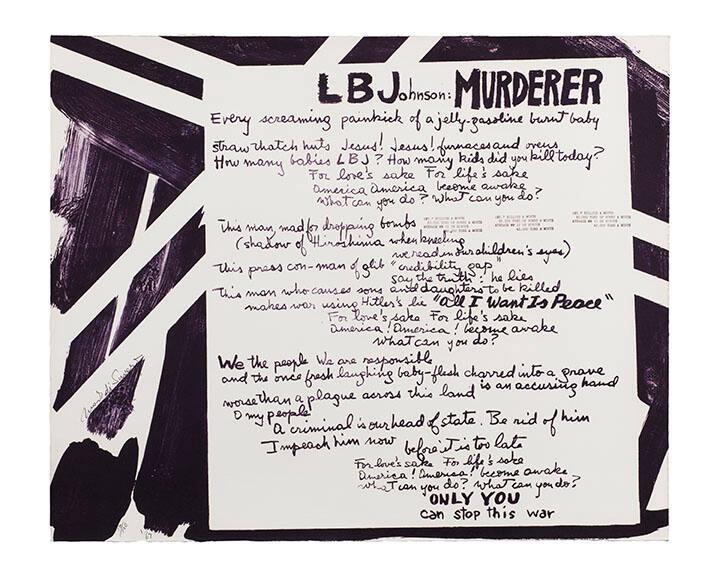 LBJohnson: MURDERER
Every screaming painkick of a jelly-gasoline burnt baby
straw thatch huts Jesus! Jesus! furnaces and ovens
How many babies LBJ? How many kids did you kill today?
For love's sake For life's sake
America America become awake
What can you do? What can you do?
This man, mad for dropping bombs
(shadow of Hiroshima when kneeling
we read in our children's eyes)
This press con-man of glib "credibility gap"
say the truth: he lies
This man who causes sons and daughters to be killed
makes war using Hitler's lie "All I Want Is Peace"
For love's sake For life's sake
America! America! become awake
What can you do?
We the people We are responsible
and the once fresh laughing baby-flesh charred into a grave
is an accusing hand
worse than a plague across this land
O my people
A criminal is our head of state. Be rid of him
Impeach him now before it is too late
For love's sake For life's sake
America! America! become awake
What can you do? What can you do?
ONLY YOU
can stop this war